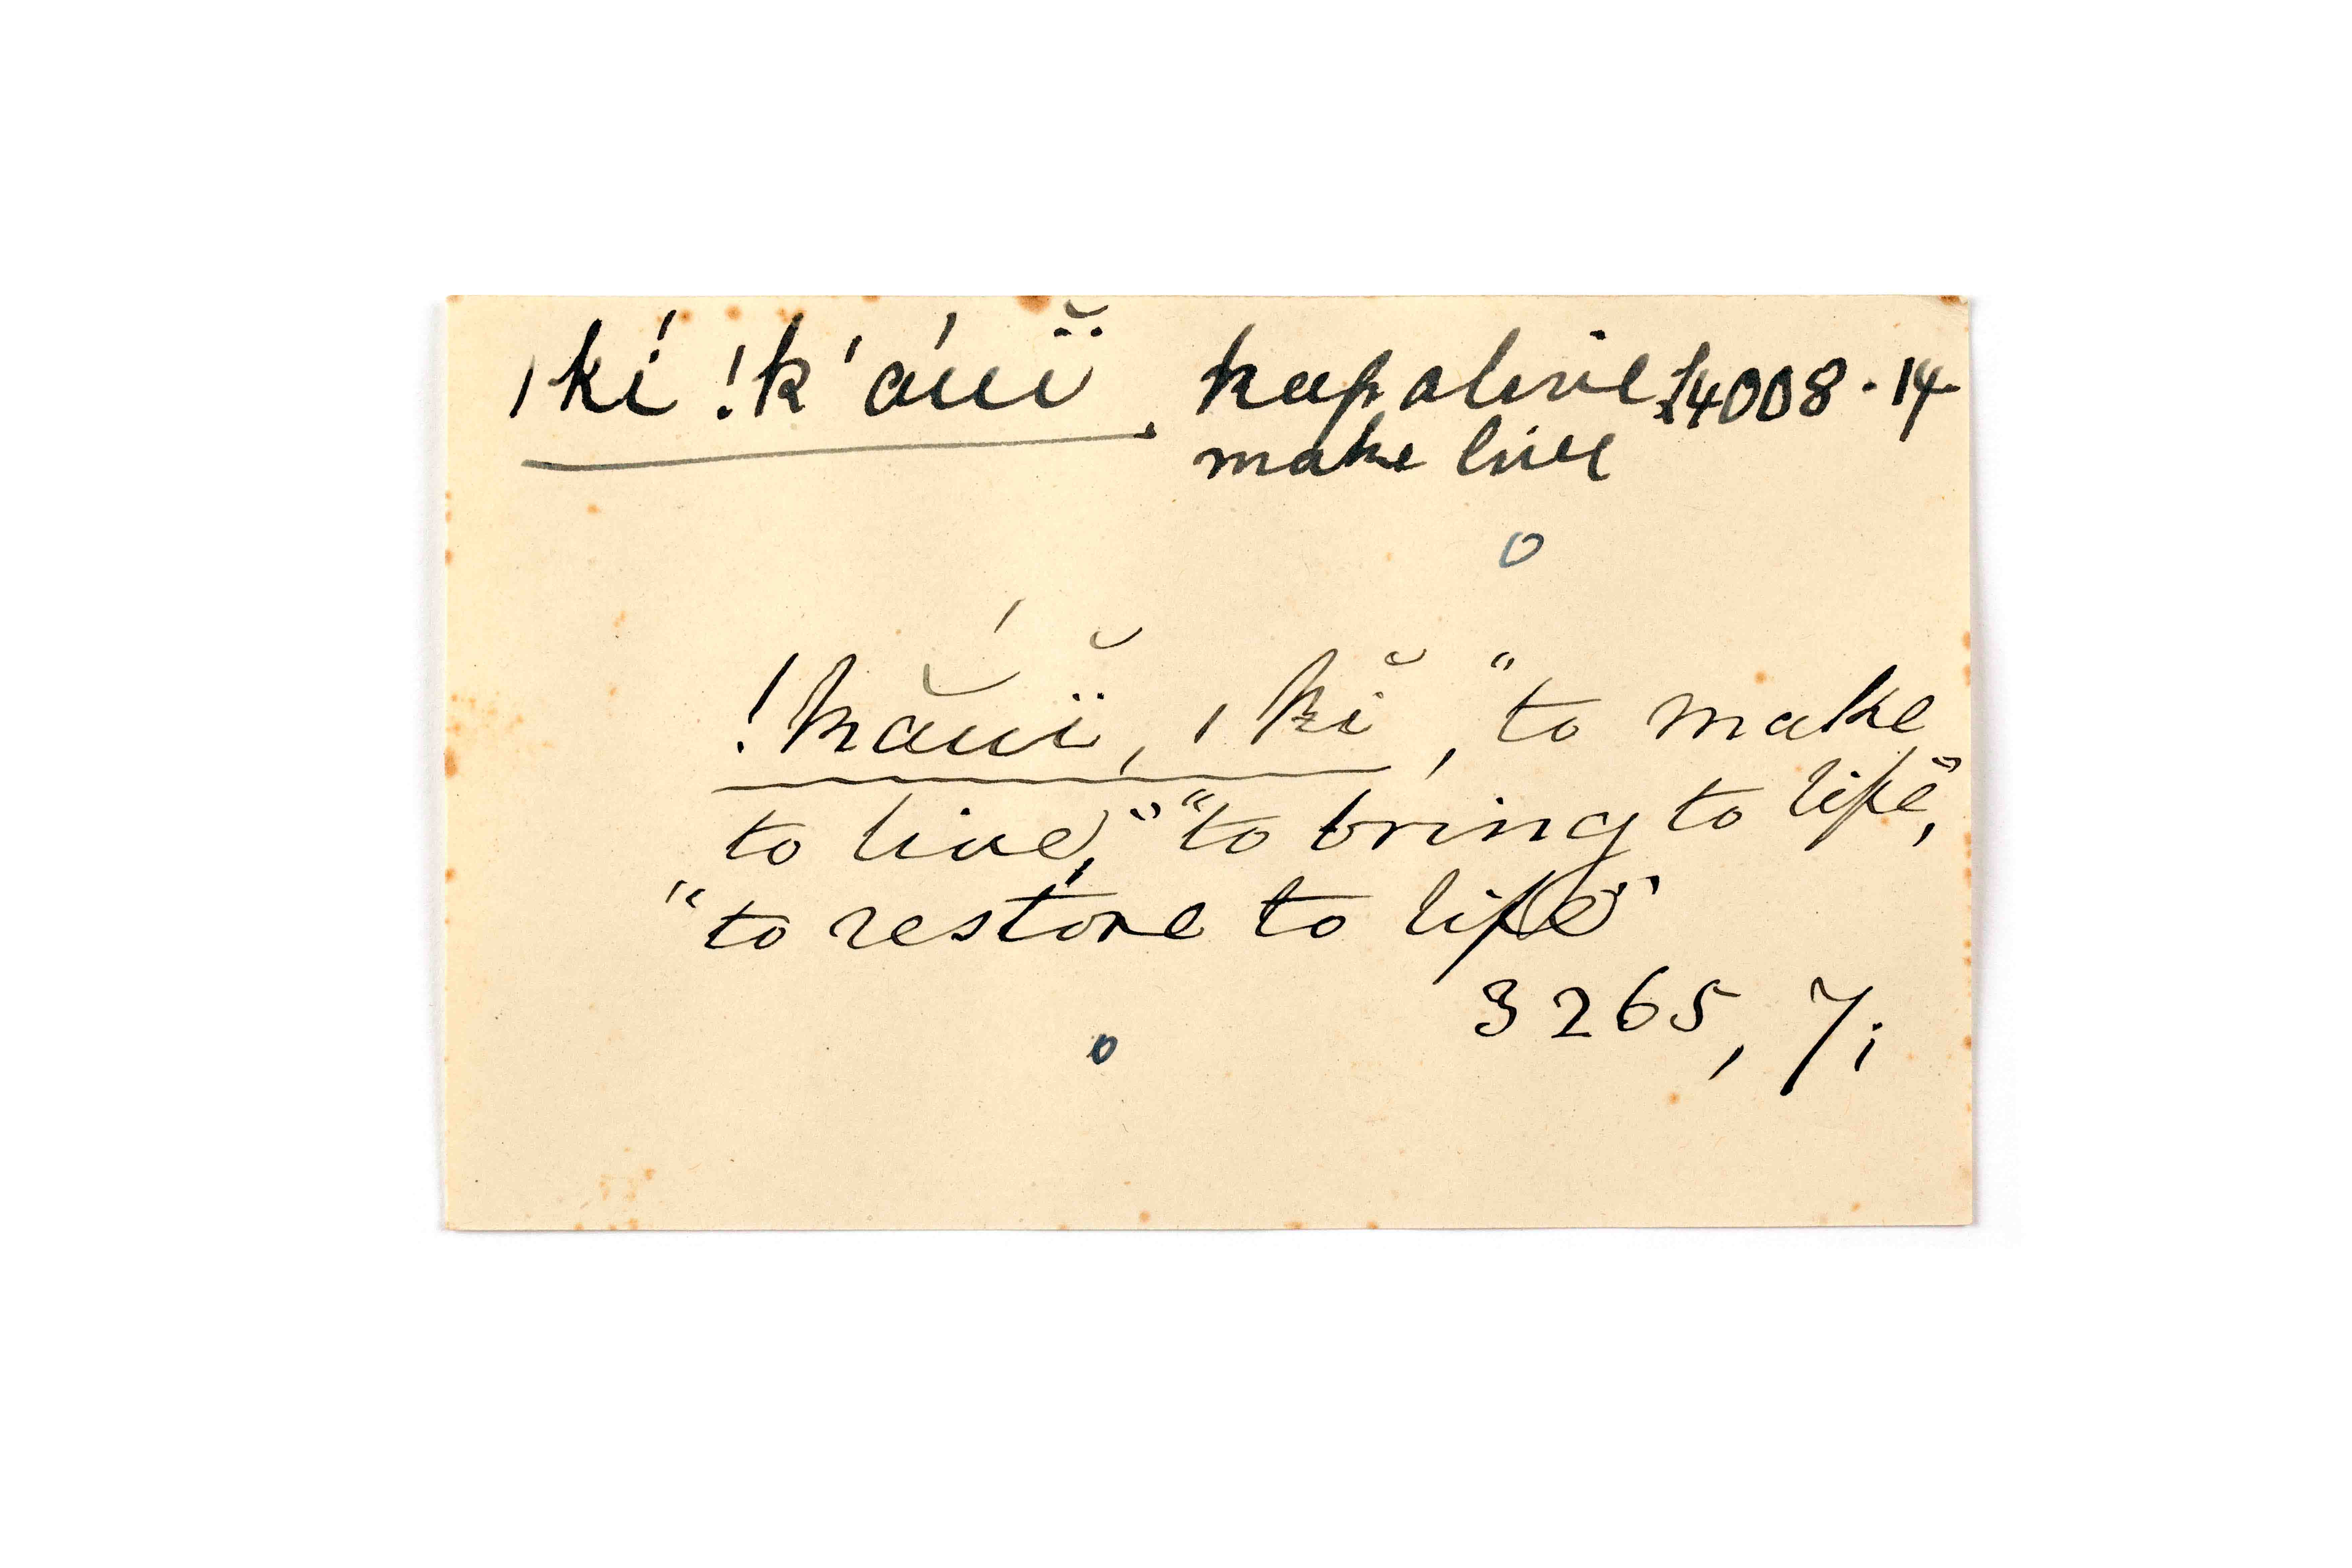 ǀkí !k'áuĭ̈, keep alive £4008.14
make live
o
!kắuĭ̈, ǀkĭ, "to make
to live," "to bring to life,"
"to restore to life"
3265, 7;
o